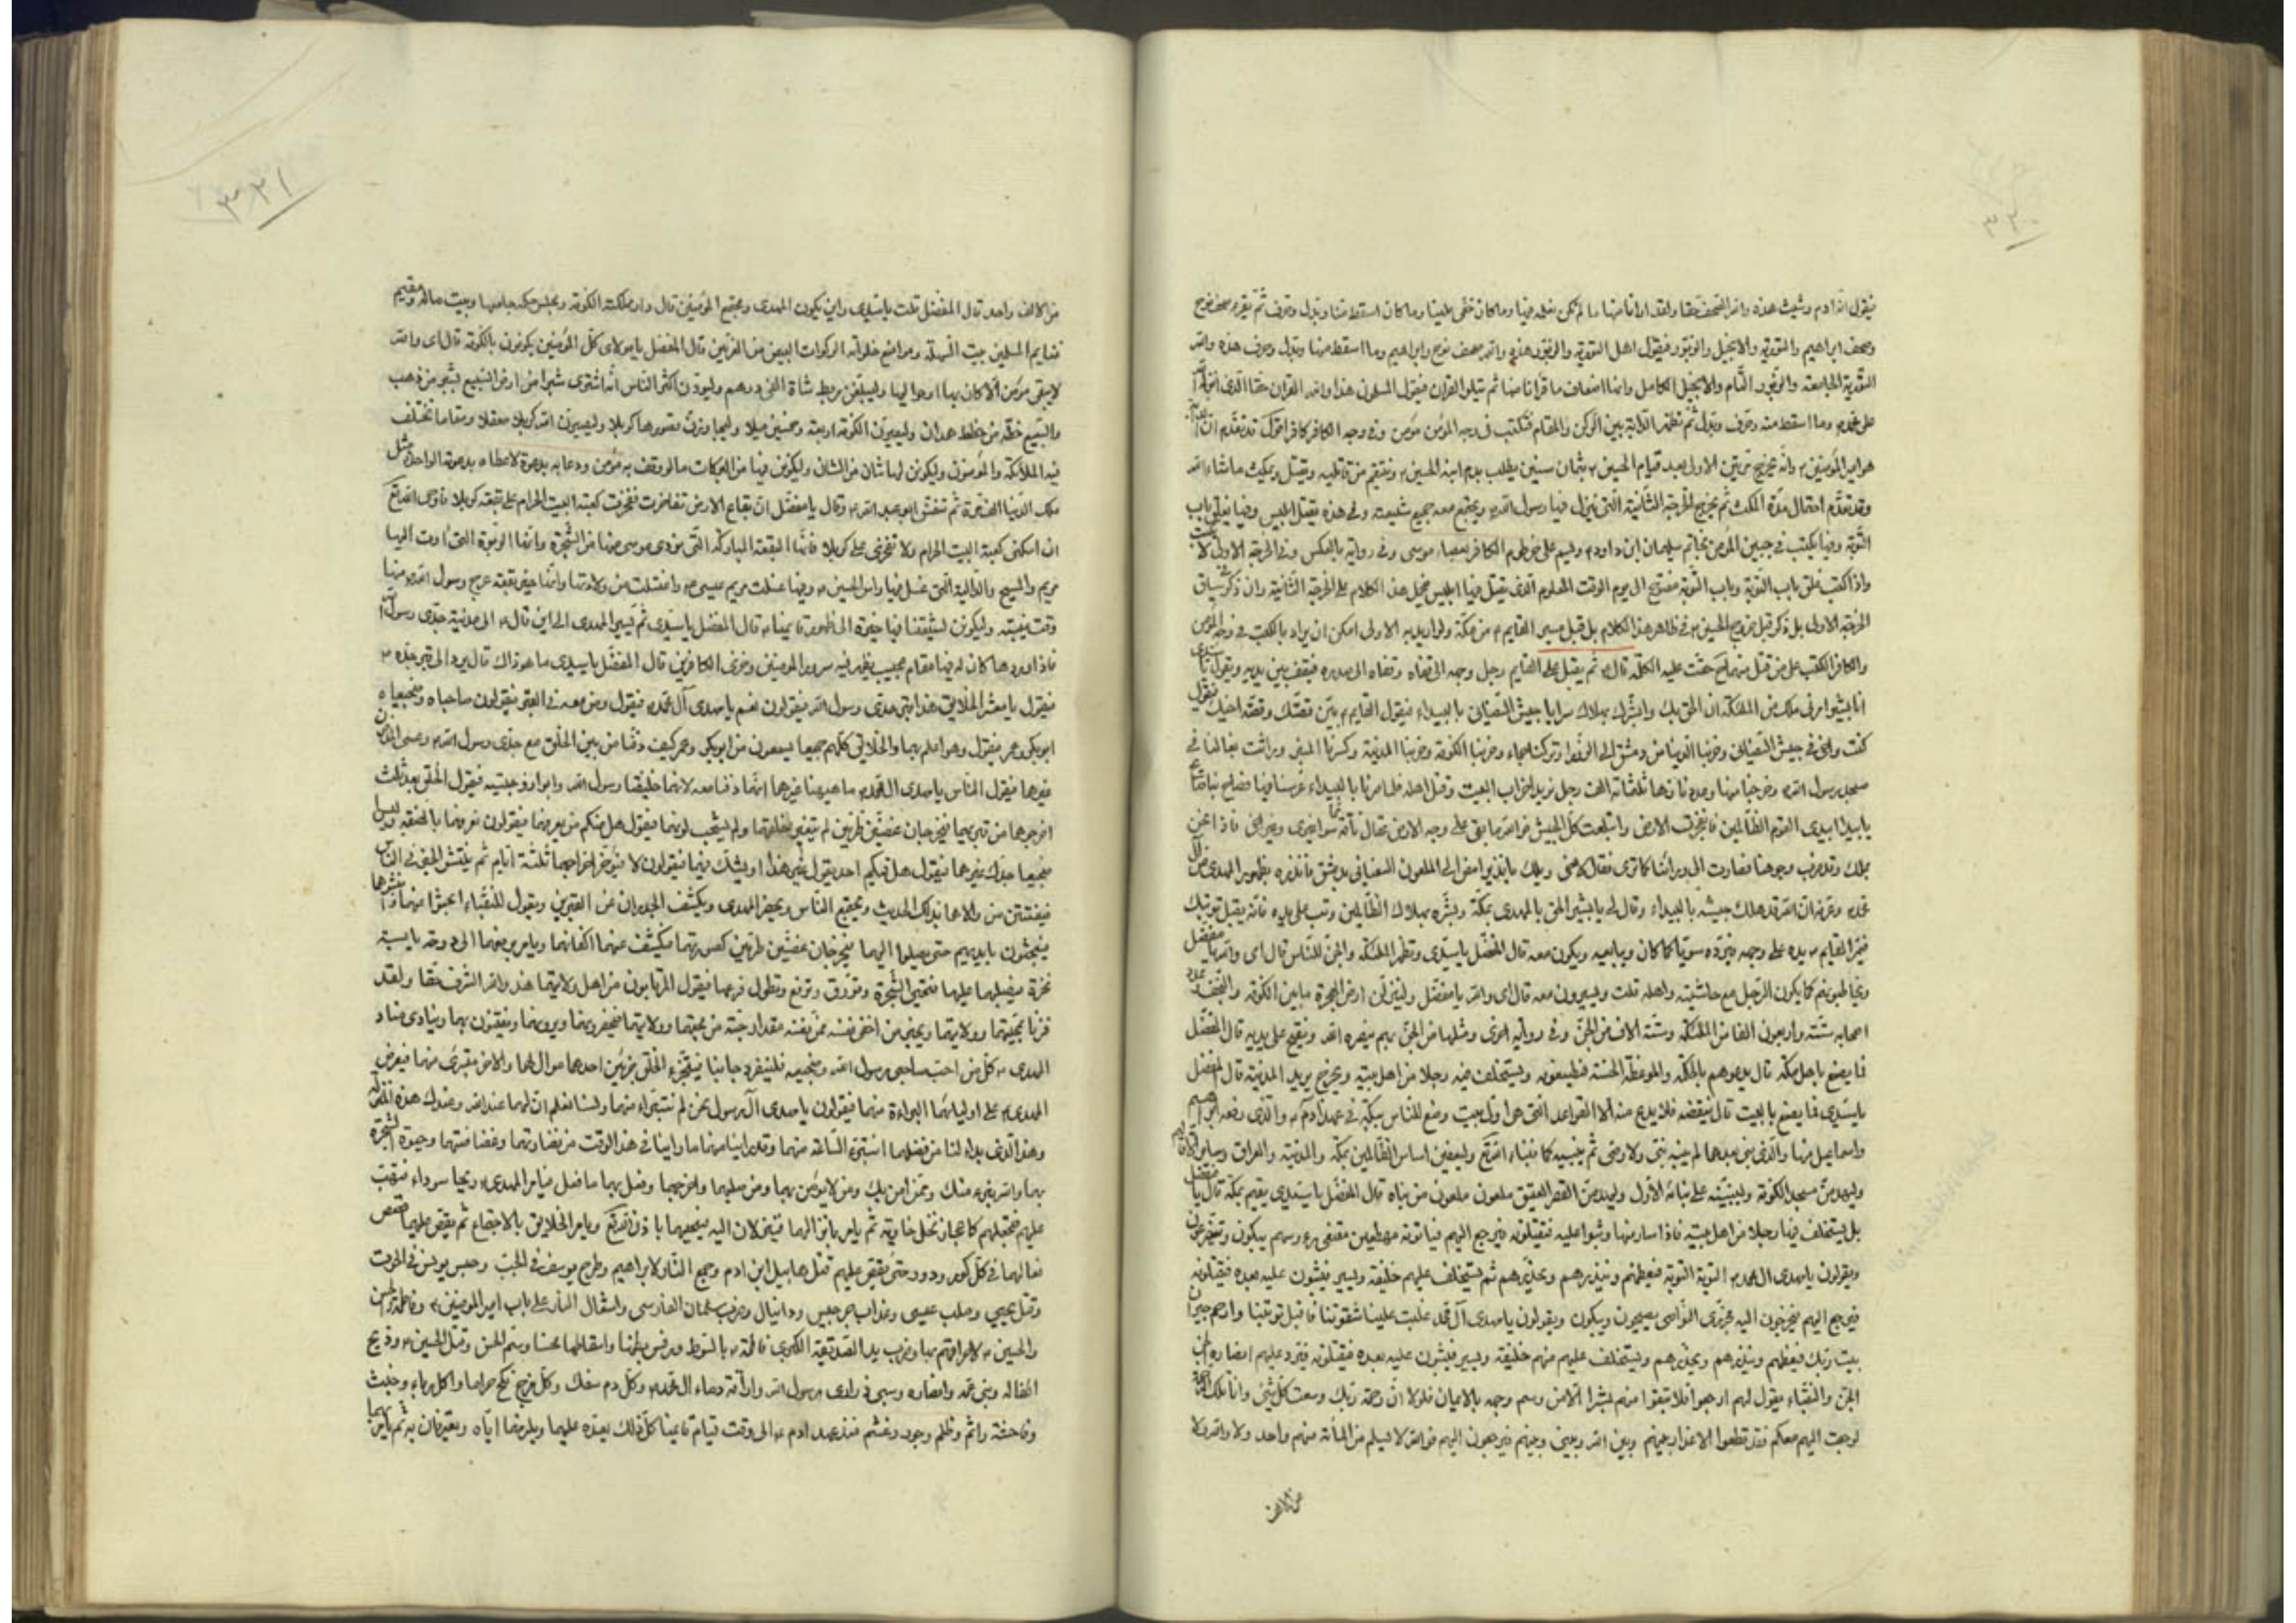 ٣٢٠
فيقول امة ادم وشيث هذه والله الصحف حقا ولقد ارانا منها ما لم نكن نعلمه فيها وما كان خفى علينا وما كان اسقط منها وبدل وحرف ثم يقرء صحف نوح
وصحف ابراهيم والتورية والانجيل والزبور فيقول اهل التورية والزبور هذه والله صحف نوح وابراهيم وما اسقط منها وبدل وحرف هذه والله
التورية الجامعة والزبور التام والانجيل الكامل وانها اضعاف ما قرانا منها ثم يتلو القران فيقول المسلمون هذا والله القران حقا الذى انزله الله
على محمد وما اسقط منه وحرف وبدل ثم تظهر الدابة بين الركن والمقام فتكتب فى وجه المؤمن مؤمن وفى وجه الكافر كافر اقول قد تقدم ان
هو امير المؤمنين وانه يخرج مرتين الاولى بعد قيام الحسين بثمان سنين يطلب بدم ابنه الحسين وينتقم من قاتليه ويقتل ويمكث ما شاء الله
وقد تقدم احتمال مدة الملك ثم يخرج الخرجة الثانية التى ينزل فيها رسول الله ويجتمع معه جميع شيعته وفى هذه يقتل ابليس وفيها يغلق باب
التوبة وفيها يكتب فى جبين المؤمن بخاتم سليمان ابن داود ويسم على خرطوم الكافر بعصا موسى وفى رواية بالعكس وفى الخرجة الاولى لا
واذا كتب غلق باب التوبة وباب التوبة مفتوح الى يوم الوقت المعلوم الذى يقتل فيها ابليس فيحمل هذا الكلام على الخرجة الثانية وان ذكر سياق
الخرجة الاولى بل ذكر قبل خروج الحسين فى ظاهر هذا الكلام بل قبل مسير القايم من مكة ولو اريد به الاولى امكن ان يراد بالكتب فى وجه المؤمن
والكافر الكتب على من قتل منهما حقت عليه الكلمة قال ثم يقبل على القايم رجل وجهه الى قفاه وقفاه الى صدره فيقف بين يديه ويقول يا سيدى
انا بشير امرنى ملك من الملئكة ان الحق بك وابشرك بهلاك سرايا جيش السفيانى بالبيداء فيقول القايم بين قصتك وقصة اخيك فيقول
كنت واخى فى جيش السفيانى وخربنا الدنيا من دمشق الى الزوراء وتركناها جماء وخربنا الكوفة وخربنا المدينة وكسرنا المنبر وراثت بغالنا فى
مسجد رسول الله وخرجنا منها وعددنا ثلثمائة الف رجل نريد اخراب البيت وقتل اهله فلما صرنا بالبيداء عرسنا فيها فصاح بنا صايح
يا بيدا ابيدى القوم الظالمين فانفجرت الارض وابتلعت كل الجيش فوالله ما بقى على وجه الارض عقال ناقة سواى وسوى اخى فاذا نحن
بملك وقد ضرب وجوهنا فصارت الى ورائنا كما ترى فقال لاخى ويلك يا نذير امض الى الملعون السفيانى بدمشق فانذره بظهور المهدى من ال
محمد وعرفه ان الله قد اهلك جيشه بالبيداء وقال لى يا بشير الحق بالمهدى بمكة وبشره بهلاك الظالمين وتب على يده فانه يقبل توبتك
فيمر القايم يده على وجهه فيرده سويا كما كان ويبايعه ويكون معه قال المفضل يا سيدى وتظهر الملئكة والجن للناس قال اى والله يا مفضل
ويخاطبونهم كما يكون الرجل مع حاشيته واهله قلت ويسيرون معه قال اى والله يا مفضل ولينزلن ارض الهجرة ما بين الكوفة والنجف وعدد
اصحابه ستة واربعون الفا من الملئكة وستة الاف من الجن وفى رواية اخرى ومثلها من الجن بهم ينصره الله ويفتح على يديه قال المفضل
فما يصنع باهل مكة قال يدعوهم بالحكمة والموعظة الحسنة فيطيعونه ويستخلف فيهم رجلا من اهل بيته ويخرج يريد المدينة قال المفضل
يا سيدى فما يصنع بالبيت قال ينقضه فلا يدع منه الا القواعد التى هى اول بيت وضع للناس ببكة فى عهد ادم والذى رفعه ابراهيم
واسماعيل منها والذى بنى بعدهما لم يبنه نبى ولا وصى ثم يبنيه كما يشاء الله تع وليعفين اساس الظالمين بمكة والمدينة والعراق وساير الاقاليم
وليهدمن مسجد الكوفة وليبنينه على بنائه الاول وليهدمن القصر العتيق ملعون ملعون من بناه قال المفضل يا سيدى يقيم بمكة قال يا مفضل
بل يستخلف فيها رجلا من اهل بيته فاذا سار منها وثبوا عليه فيقتلونه فيرجع اليهم فياتونه مهطعين مقنعى رؤسهم يبكون ويتضرعون
ويقولون يا مهدى ال محمد التوبة التوبة فيعظهم وينذرهم ويحذرهم ثم يستخلف عليهم خليفة ويسير فيثبون عليه بعده فيقتلونه
فيرجع اليهم فيخرجون اليه مجززى النواصى يصيحون ويبكون ويقولون يا مهدى آل محمد غلبت علينا شقوتنا فاقبل توبتنا وارحم جيران
بيت ربك فيعظهم وينذرهم ويحذرهم ويستخلف عليهم منهم خليفة ويسير فيثبون عليه بعده فيقتلونه فيرد عليهم انصاره من
الجن والنقباء يقول لهم ارجعوا فلا تبقوا منهم بشرا الا من وسم وجهه بالايمان فلولا ان رحمة ربك وسعت كل شئ وانا تلك الرحمة
لرجعت اليهم معكم فقد قطعوا الاعذار بينهم وبين الله وبينى وبينهم فيرجعون اليهم فوالله لا يسلم من المائة منهم واحد ولا والله ولا
من الالف
٣٢١
من الالف واحد قال المفضل قلت يا سيدى واين يكون المهدى ويجتمع المؤمنين قال دار ملكته الكوفة ومجلس حكمه جامعها وبيت ماله ومقسم
غنايم المسلمين بيت السهلة ومواضع خلواته الركوات البيض من الغريين قال المفضل يا مولاى كل المؤمنين يكونون بالكوفة قال اى والله
لا يبقى مؤمن الا كان بها او حواليها وليبلغن مربط شاة الفى درهم وليودن اكثر الناس انه اشترى شبرا من ارض السبيع بشبر من ذهب
والسبيع خطة من خطط همدان وليصيرن الكوفة اربعة وخمسين ميلا وليجاورن قصورها كربلا وليصيرن الله كربلا معقلا ومقاما تختلف
فيه الملائكة والمؤمنون وليكونن لها شان من الشان وليكونن فيها من البركات ما لو وقف به مؤمن ودعا به بدعوة لاعطاه بدعوته الواحدة مثل
ملك الدنيا الف مرة ثم تنفس ابو عبد الله وقال يا مفضل ان بقاع الارض تفاخرت ففخرت كعبة البيت الحرام على بقعة كربلا فاوحى الله تع
ان اسكتى كعبة البيت الحرام ولا تفخرى على كربلا فانها البقعة المباركة التى نودى موسى منها من الشجرة وانها الربوة التى اوت اليها
مريم والمسيح والدالية التى غسل فيها راس الحسين وفيها غسلت مريم عيسى واغتسلت من ولادتها وانها خير بقعة عرج رسول الله منها
وقت غيبته وليكونن لشيعتنا فيها خيرة الى ظهور قايمنا قال المفضل يا سيدى ثم يسير المهدى الى اين قال الى مدينة جدى رسول الله
فاذا وردها كان له فيها مقام عجيب يظهر فيه سرور المؤمنين وخزى الكافرين قال المفضل يا سيدى ما هو ذاك قال يرد الى قبر جده
فيقول يا معشر الخلايق هذا قبر جدى رسول الله فيقولون نعم يا مهدى آل محمد فيقول ومن معه فى القبر فيقولون صاحباه وضجيعاه
ابو بكر وعمر فيقول وهو اعلم بهما والخلايق كلهم جميعا يسمعون من ابو بكر وعمر كيف دفنا من بين الخلق مع جدى رسول الله وعسى المدفون
غيرهما فيقول الناس يا مهدى ال محمد ما هيهنا غيرهما انهما دفنا معه لانهما خليفتا رسول الله وابوا زوجتيه فيقول للخلق بعد ثلث
اخرجوهما من قبريهما فيخرجان غضين طريين لم يتغير خلقهما ولم يشحب لونهما فيقول هل منكم من يعرفهما فيقولون نعرفهما بالصفة وليس
ضجيعا جدك غيرهما فيقول هل فيكم احد يقول غير هذا او يشك فيهما فيقولون لا فيؤخر اخراجهما ثلثة ايام ثم ينتشر الخبر فى الناس
فيفتتن من والاهما بذلك الحديث ويجتمع الناس ويحضر المهدى ويكشف الجدران عن القبرين ويقول للنقباء ابحثوا عنهما وانبشوهما
فيبحثون بايديهم حتى يصلوا اليهما فيخرجان غضين طريين كصورتهما فيكشف عنهما اكفانهما ويامر برفعهما الى دوحة يابسة
نخرة فيصلبهما عليها فتحيى الشجرة وتورق وتونع وتطول فرعها فيقول المرتابون من اهل ولايتهما هذا والله الشرف حقا ولقد
فزنا بمحبتهما وولايتهما ويخبر من اخفى نفسه ممن فى نفسه مقدار حبة من محبتهما وولايتهما فيحضرونهما ويرونهما ويفتنون بهما وينادى مناد
المهدى كل من احب صاحبى رسول الله وضجيعيه فلينفرد جانبا فيتجزء الخلق جزئين احدهما موال لهما والاخر متبرئ منهما فيعرض
المهدى على اوليائهما البراءة منهما فيقولون يا مهدى آل رسول نحن لم نتبرء منهما ولسنا نعلم ان لهما عند الله وعندك هذه المنزلة
وهذا الذى بدا لنا من فضلهما انتبرء الساعة منهما وقد راينا منهما ما راينا فى هذا الوقت من نضارتهما وغضاضتهما وحيوة الشجرة
بهما والله نبرء منك وممن امن بك ومن لا يؤمن بهما ومن صلبهما واخرجهما وفعل بهما ما فعل فيامر المهدى ريحا سوداء فتهب
عليهم فتجعلهم كاعجاز نخل خاوية ثم يامر بانزالهما فينزلان اليه فيحييهما باذن الله تع ويامر الخلايق بالاجتماع ثم يقص عليهما قصص
فعالهما فى كل كور ودور حتى يقص عليهم قتل هابيل ابن ادم وجمع النار لابراهيم وطرح يوسف فى الجب وحبس يونس فى الحوت
وقتل يحيى وصلب عيسى وعذاب جرجيس ودانيال وضرب سلمان الفارسى واشعال النار على باب امير المؤمنين وفاطمة والحسن
والحسين لاحراقهم بها وضرب يد الصديقة الكبرى فاطمة بالسوط ورفس بطنها واسقاطها محسنا وسم الحسن وقتل الحسين وذبح
اطفاله وبنى عمه وانصاره وسبى ذرارى رسول الله واراقة دماء ال محمد وكل دم سفك وكل فرج نكح حراما واكل ربا وخبث
وفاحشة واثم وظلم وجور وغشم منذ عهد ادم الى وقت قيام قايمنا كل ذلك يعدده عليهما ويلزمهما اياه ويعترفان به ثم يامر بهما